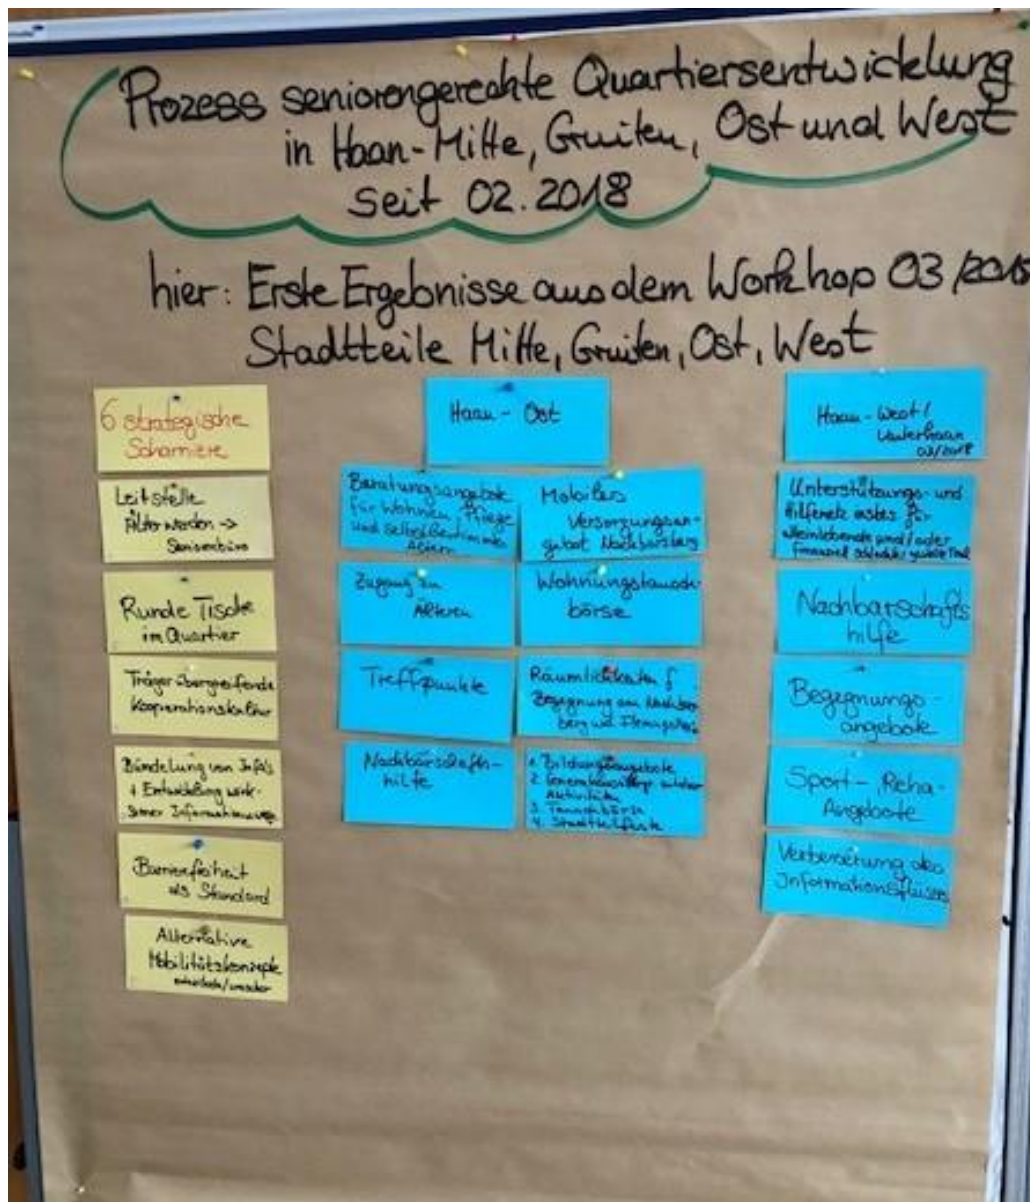 Prozess seniorengerechte Quartiersentwicklung
in Haan-Mitte, Gruiten, Ost und West
seit 02.2018
hier: Erste Ergebnisse aus dem Workhop 03/2018
Stadtteile Mitte, Gruiten, Ost, West
6 strategische
Scharniere
Leitstelle
Älter werden ->
Seniorenbüro
Runde Tische
im Quartier
Trägerübergreifende
Kooperationskultur
Bündelung von Info's
+ Entwicklung wirk-
samer Informationswege
Barrierefreiheit
als Standard
Alternative
Mobilitätskonzepte
Haan - Ost
Beratungsangebote
für Wohnen, Pflege
und selbstbestimmtes
Altern
Zugang zu
Älteren
Treffpunkte
Nachbarschafts-
hilfe
Mobiles
Versorgungsan-
gebot Nachbarsberg
Wohnungstausch-
börse
Räumlichkeiten f.
Begegnung am Nachbars-
berg und
1. Bildungsangebote
2.
Aktivitäten
3. Tauschbörse
4.
Haan - West /
Unterhaan
03/2018
Unterstützungs- und
Hilfenetz für
alleinlebende und/oder
finanziell schlechter
Nachbarschafts
hilfe
Begegnungs-
angebote
Sport-, Reha-
Angebote
Verbesserung des
Informationsflusses